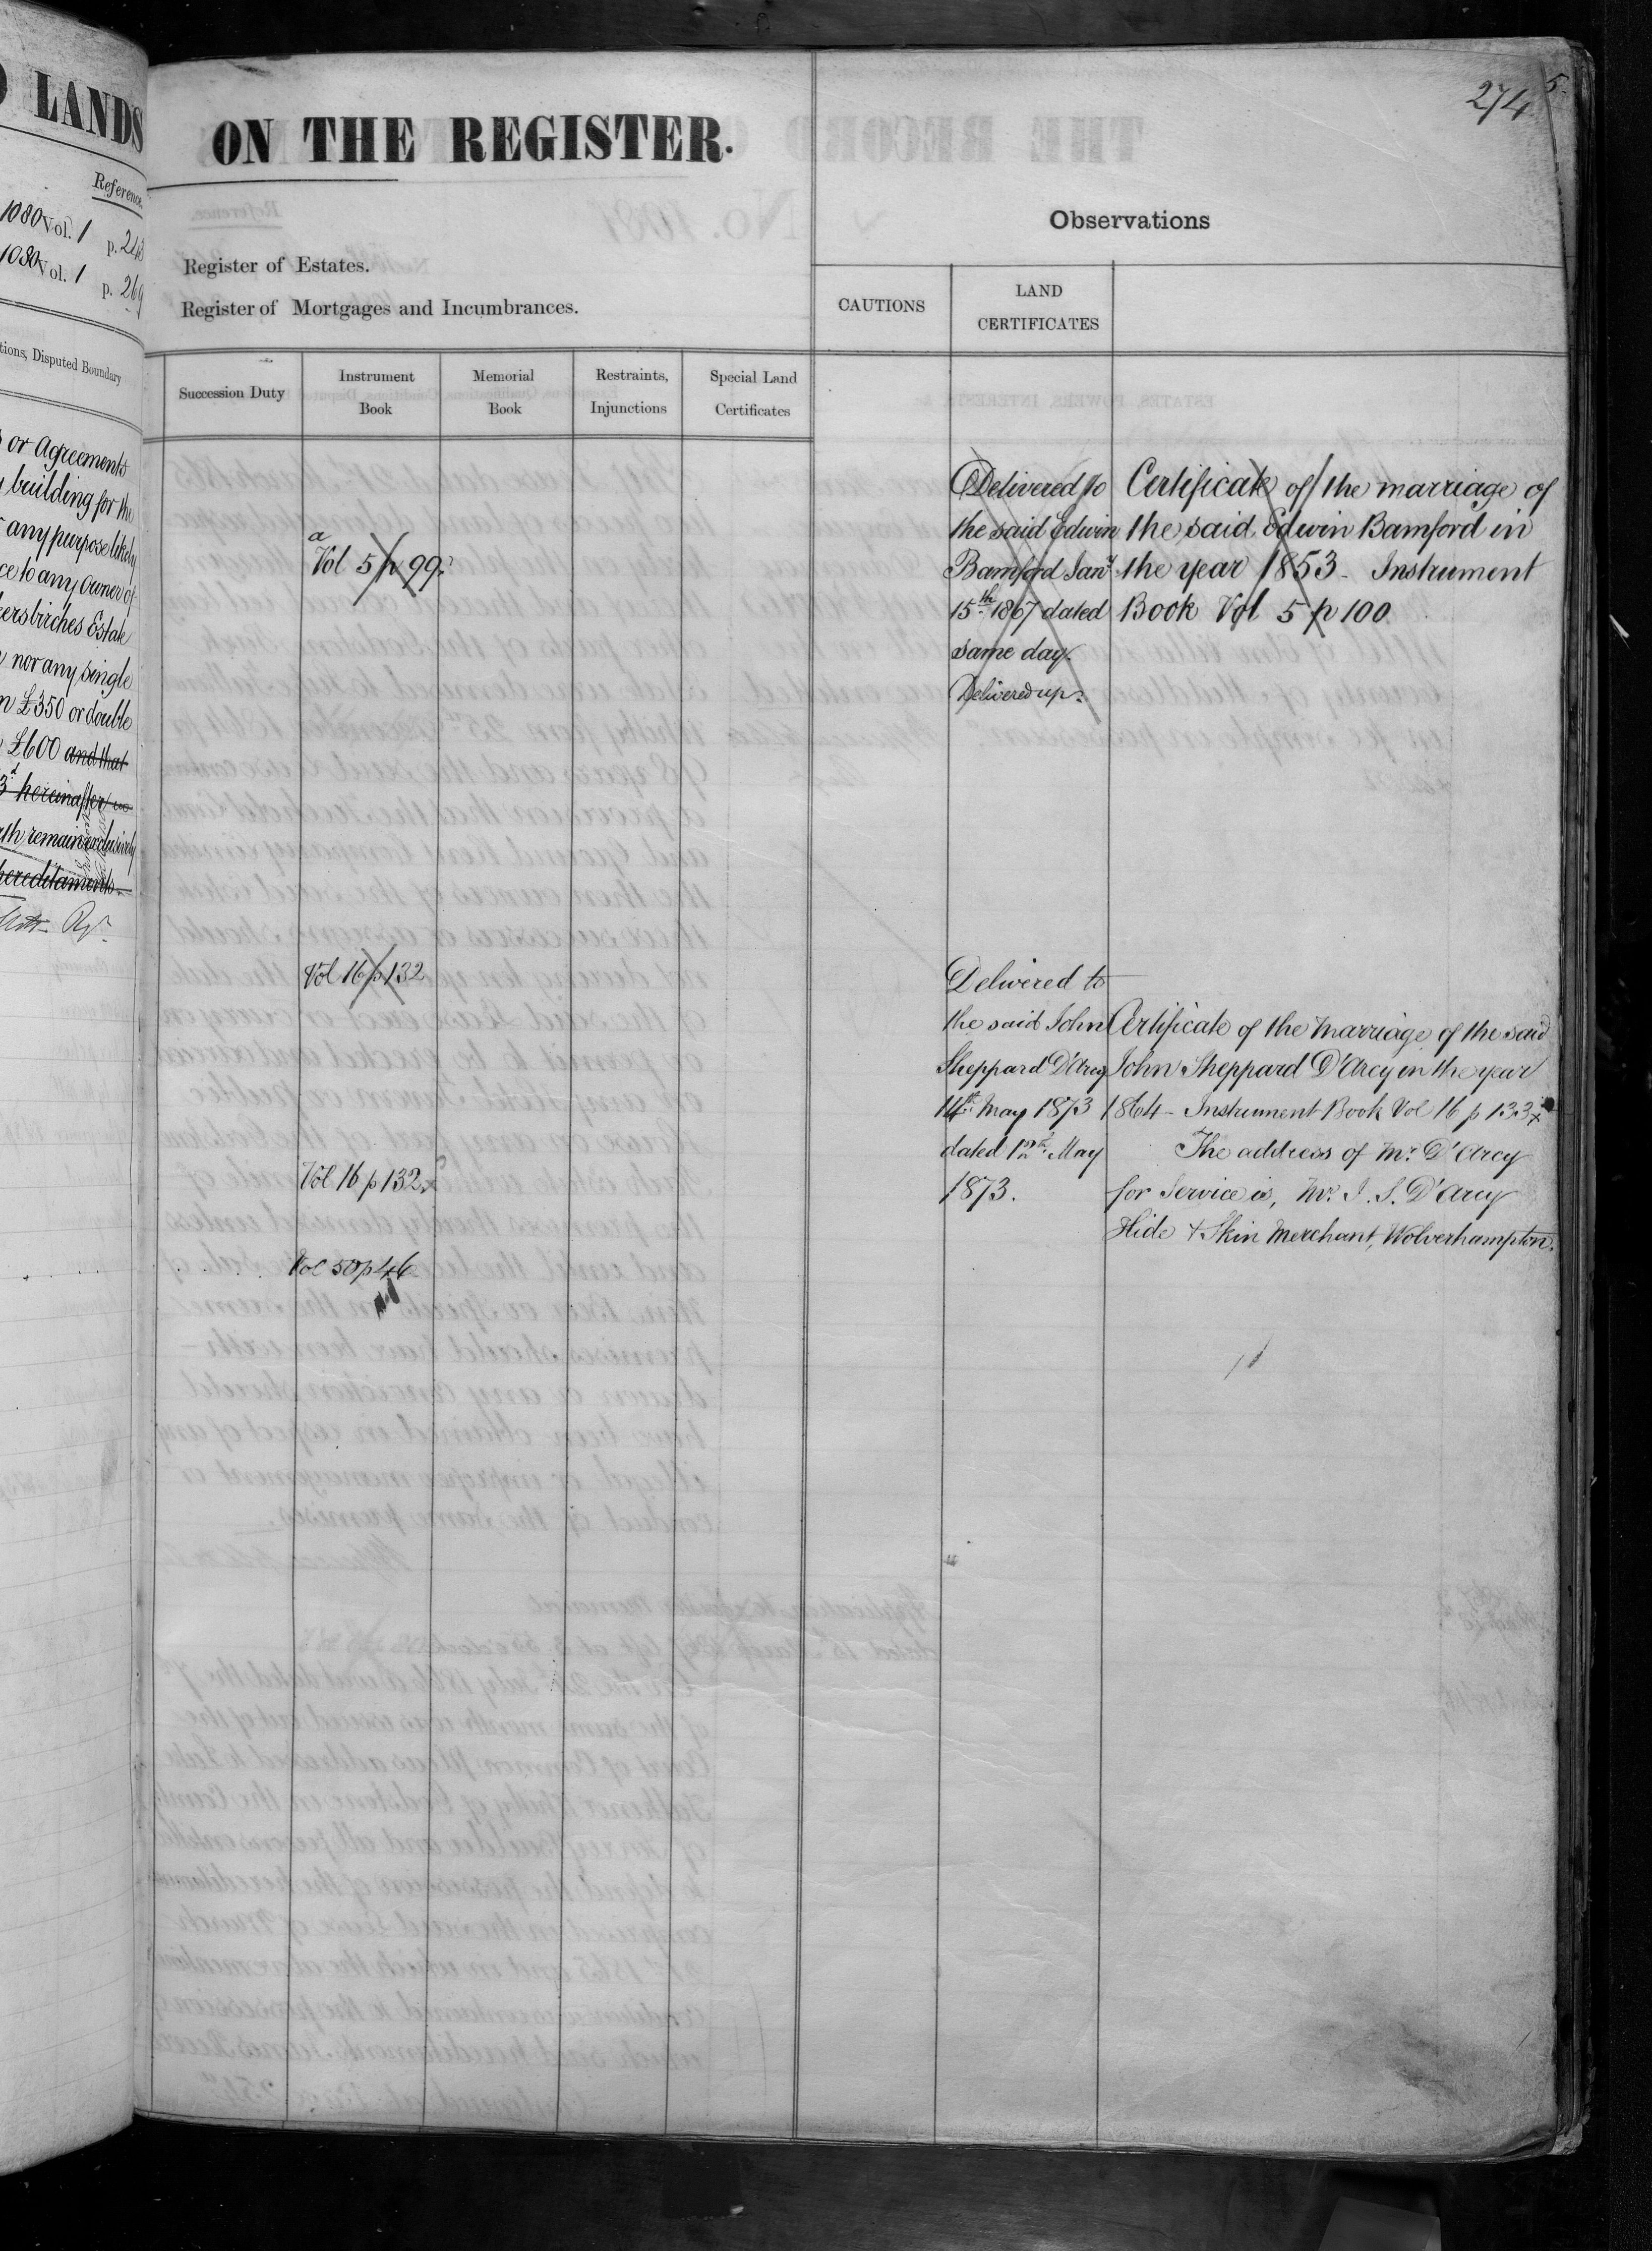 LANDS
Reference
1080 Vol. 1 p. 248
1080 Vol. 1 p. 269
tions, Disputed Boundary
or Agreements
building for the
any purpose likely
ce to any owner of
kersbirches Estate
nor any single
n £350 or double
£600 and that
3d hereinafter
remain exclusively
hereditaments.
274
5
ON THE REGISTER.
Observations
Register of Estates.
Register of Mortgages and Incumbrances.
CAUTIONS
LAND
CERTIFICATES
Succession Duty
Instrument
Book
Memorial
Book
Restraints,
Injunctions
Special Land
Certificates
a
Vol 5 p 99.
Delivered to
the said Edwin
Bamford Jany
15th 1867 dated
same day.
Delivered up.
Certificate of the marriage of
the said Edwin Bamford in
the year 1853 - Instrument
Book Vol 5 p 100
Vol 16 p 132
Delivered to
the said John
Sheppard D'Arcy
14th May 1873
dated May
1873.
Certificate of the Marriage of the said
John Sheppard D'Arcy in the year
1864 - Instrument Book Vol 16 p 133
The address of Mr. D'Arcy
for Service is, Mr. J. S. D'Arcy
Hide + Skin Merchant, Wolverhampton.
Vol 16 p 132
Vol 50 p 46